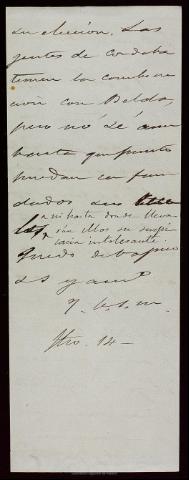 su eleccion. Las
gentes de Cordoba
temen la combina
cion con Beldo,
pero no sé aun
hasta que punto
puedan ser fun
dados sus
ni hasta donde lleva
rán ellos su suspi
cacia intolerante.
Quedo de
S. S. y am.º
Q. b. s. m.
14 —